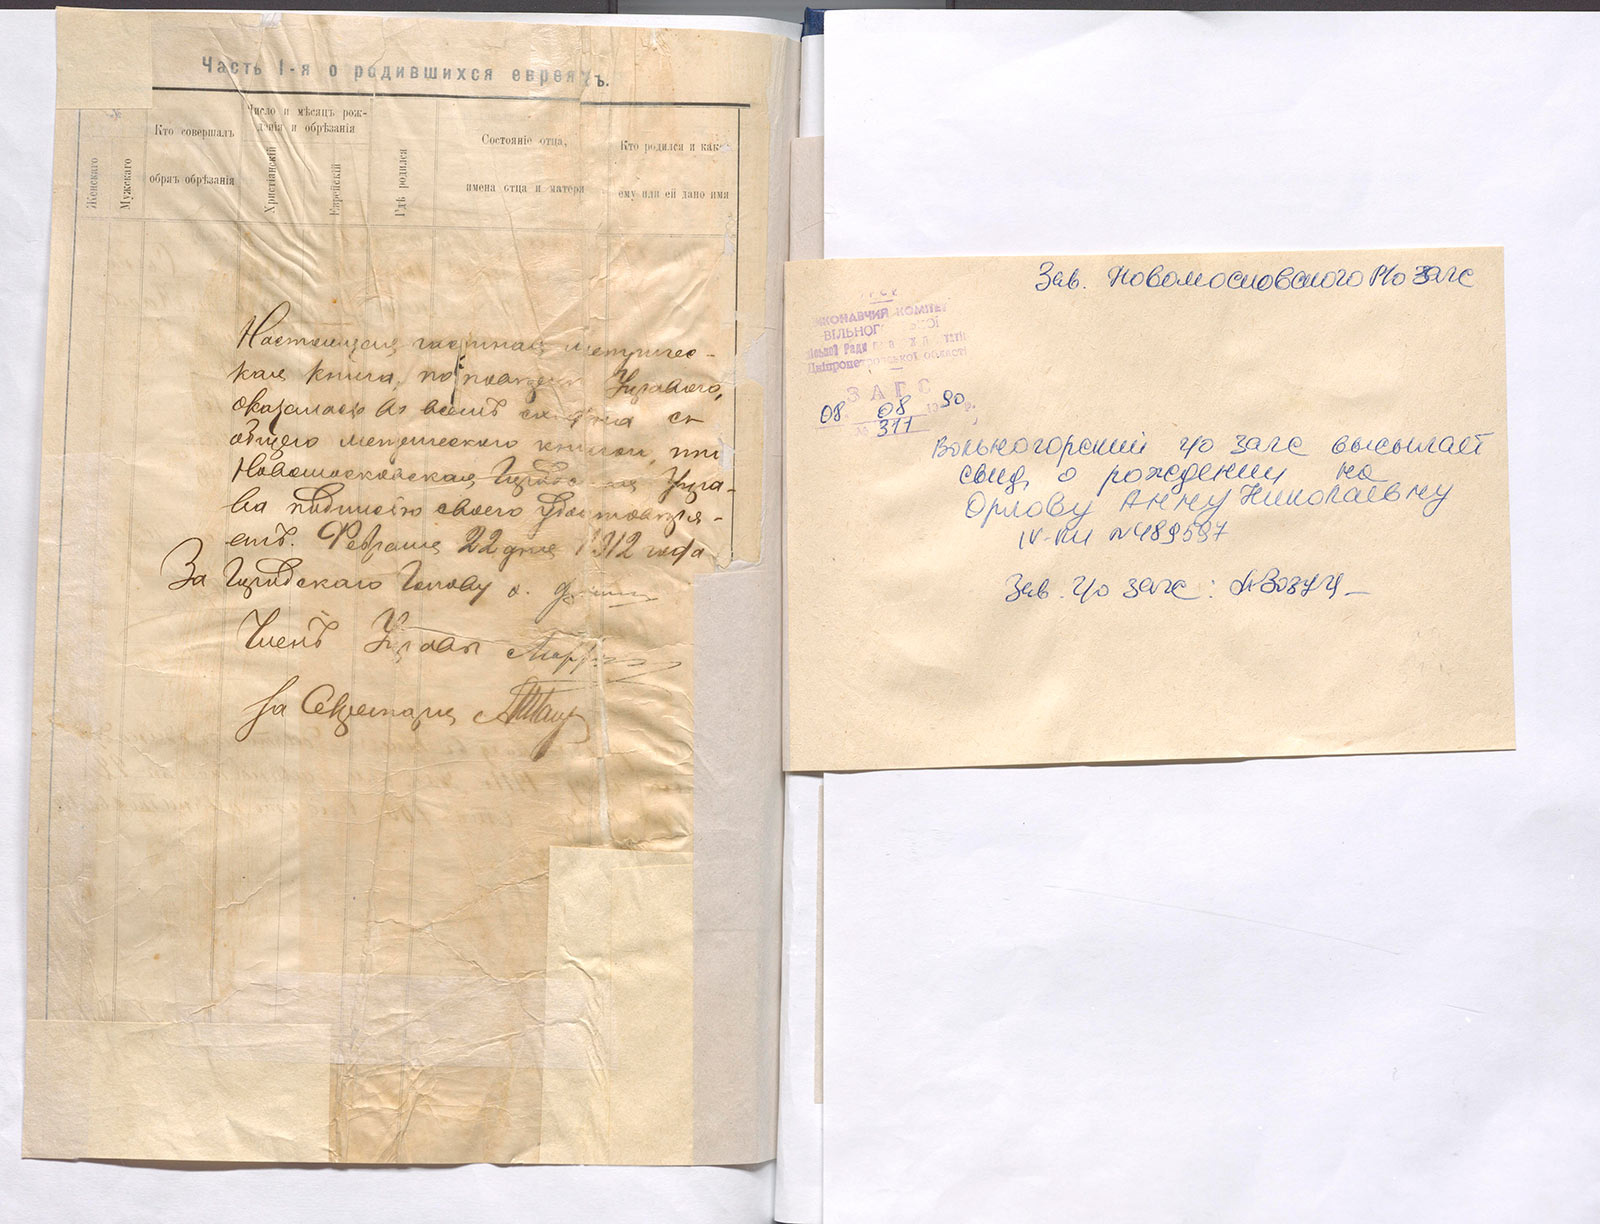 Часть I-я о родившихся евреяхъ.
Женскаго
Мужскаго
Кто совершалъ
обрядъ обрѣзанія
Число и мѣсяцъ рож-
денія и обрѣзанія
Христіанскій
Еврейскій
Гдѣ родился
Состояніе отца,
имена отца и матери
Кто родился и как
ему или ей дано имя
Настоящая частная метричес-
кая книга, по Управою,
оказалась во всемъ сходна съ
общею метрическою книгою, что
Новомосковская Городская Упра-
ва подписью своею удостовѣря-
етъ. Февраля 22 дня 1912 года
За Городскаго Голову
Членъ Управы
За Секретаря
Зав. Новомосковского Р/о загс
ВИКОНАВЧИЙ КОМІТЕТ
Дніпропетровської області
ЗАГС
08 08 1990 р.
№ 311
Вольногорский г/о загс высылает
свид. о рождении на
Орлову Анну Николаевну
IV-КИ №489597
Зав. г/о загс: